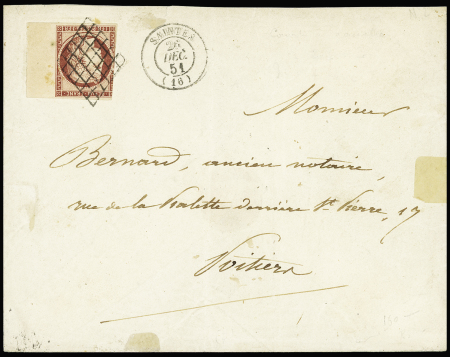 SAINTES
26
DEC.
51
(16)
Monsieur
Bernard, ancien notaire,
rue de la Psalette derrière St Pierre, 17
Poitiers